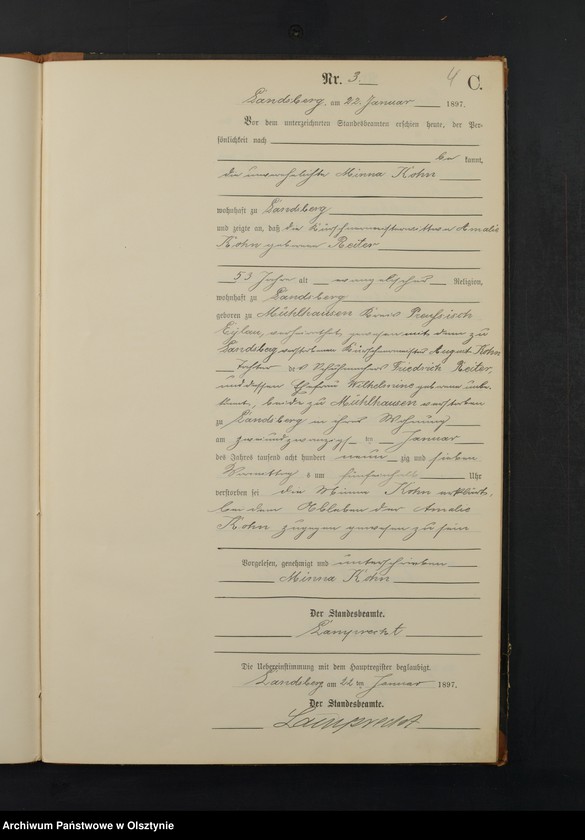 4
Nr. 3. C.
Landsberg, am 22. Januar 1897.
Vor dem unterzeichneten Standesbeamten erschien heute, der Per-
sönlichkeit nach
be kannt,
die unverehelichte Minna Kohn
wohnhaft zu Landsberg
und zeigte an, daß die Kürschnermeisterwittwe Amalie
Kohn geborene Reiter
53 Jahre alt evangelischer Religion,
wohnhaft zu Landsberg
geboren zu Mühlhausen Kreis Preußisch
Eylau, verheirathet gewesen mit dem zu
Landsberg verstorbenen Kürschnermeister August Kohn
Tochter des Schuhmachers Friedrich Reiter,
und dessen Ehefrau Wilhelmine geborene unbe-
kannt, beide zu Mühlhausen verstorben
zu Landsberg in ihrer Wohnung
am zweiundzwanzigsten Januar
des Jahres tausend acht hundert neun zig und sieben
Vormittags um Uhr
verstorben sei die Minna Kohn erklärte,
bei dem Ableben der Amalie
Kohn zugegen gewesen zu sein
Vorgelesen, genehmigt und unterschrieben
Minna Kohn
Der Standesbeamte.
Lamprecht
Die Uebereinstimmung mit dem Hauptregister beglaubigt.
Landsberg am 22ten Januar 1897.
Der Standesbeamte.
Lamprecht
Archiwum Państwowe w Olsztynie